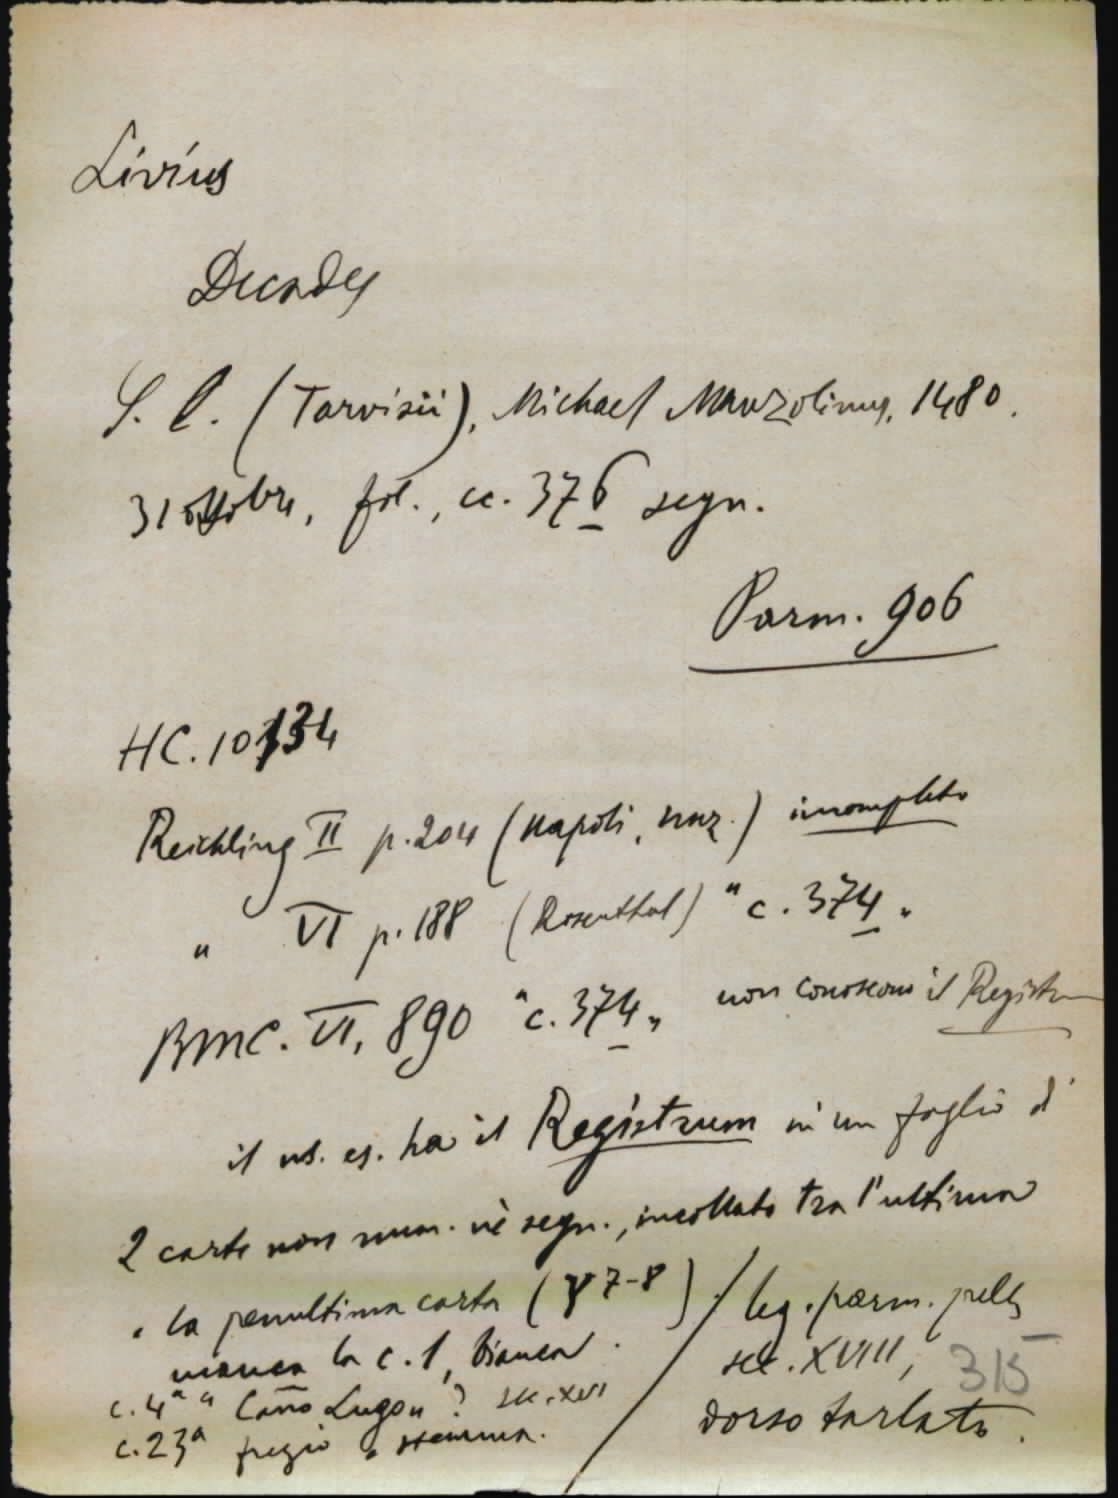 Livius
Decades
S. l. (Tarvisii), Michael Manzolinus, 1480.
31 ottobre, fol., cc. 376 segn.
Parm. 906
HC. 10134
Reichling II p. 204 (Napoli, naz.) incompleto
" VI p. 188 (Rosenthal) "c. 374"
BMC. VI, 890 "c. 374" non conoscono il Registrum
il ns. es. ha il Registrum in un foglio di
2 carte non num. nè segn., incollato tra l'ultima
e la penultima carta (7-8). / leg. parm. pelle
manca la c. 1, bianca. sec. XVIII, 315
c. 4a " Lugo" ? sec. XVI dorso tarlato.
c. 23a fregio e stemma.